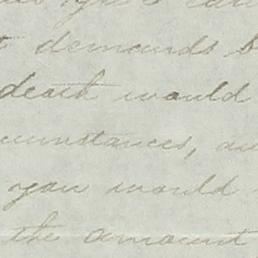 demands
death would
cumstances,
you would
the amount